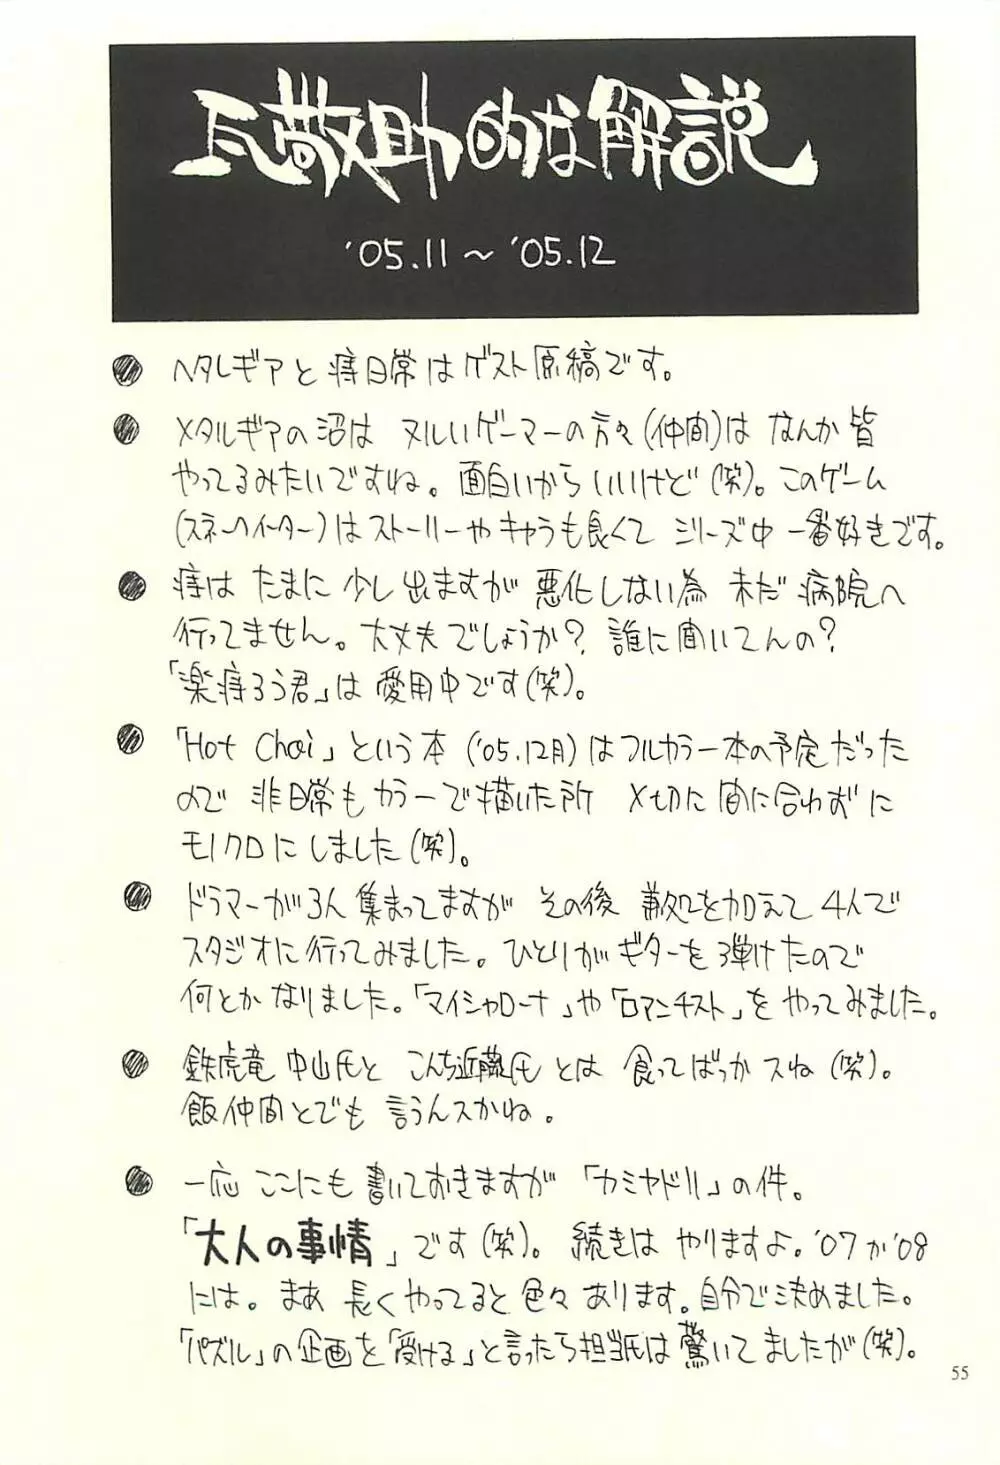 瓦敬助的な解説
'05.11～'05.12
ヘタレギアと痔日常はゲスト原稿です。
メタルギアの沼は ヌルいゲーマーの方々(仲間)は なんか皆
やってるみたいですね。面白いからいいけど(笑)。このゲーム
(スネークイーター)はストーリーやキャラも良くて シリーズ中 一番好きです。
痔は たまに 少し出ますが 悪化しない為 未だ 病院へ
行ってません。大丈夫でしょうか? 誰に聞いてんの?
「楽痔ろう君」は 愛用中です(笑)。
「Hot Choi」という本('05.12月)はフルカラー本の予定だった
ので 非日常もカラーで描いた所 〆切に間に合わずに
モノクロにしました(笑)。
ドラマーが3人 集まってますが その後 兼処を加えて 4人で
スタジオに行ってみました。ひとりがギターを弾けたので
何とかなりました。「マイシャローナ」や「ロマンチスト」を やってみました。
鉄虎竜 中山氏と こんち近藤氏 とは 食ってばっかスね(笑)。
飯仲間とでも 言うんスかね。
一応 ここにも 書いておきますが 「カミヤドリ」の件。
「大人の事情」です(笑)。 続きは やりますよ。'07か'08
には。まあ 長くやってると 色々 あります。自分で決めました。
「パズル」の企画を「受ける」と言ったら担当氏は 驚いてましたが(笑)。
55